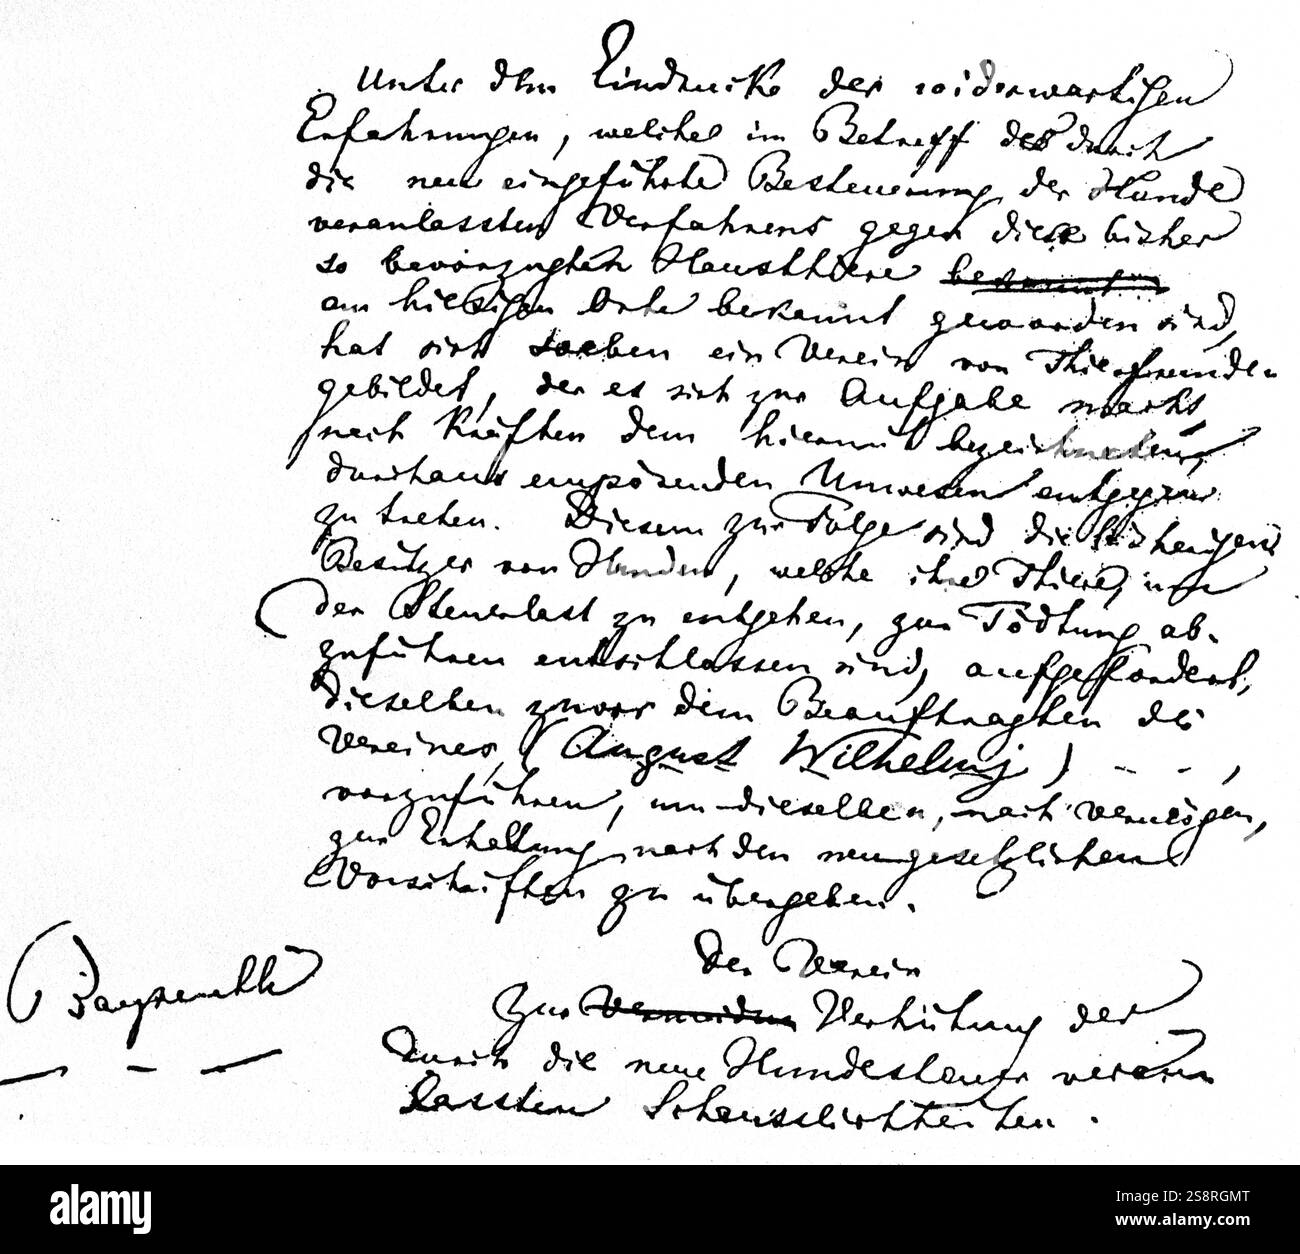 Unter dem Eindrucke der widerwärtigen
Erfahrungen, welche im Betreff des durch
die neu eingeführte Besteuerung der Hunde
veranlassten Verfahrens gegen diese bisher
so bevorzugten Hausthiere bekannt
am hiesigen Orte bekannt geworden sind,
hat sich soeben ein Verein von Thierfreunden
gebildet, der es sich zur Aufgabe macht,
nach Kräften dem hiermit bezeichneten,
durchaus empörenden Unwesen entgegen
zu treten. Diesem zur Folge sind die bisherigen
Besitzer von Hunden, welche ihre Thiere, um
der Steuerlast zu entgehen, zur Tödtung ab-
zuführen entschlossen sind, aufgefordert,
dieselben zuvor dem Beauftragten des
Vereines, (August Wilhelmj) - - - ,
vorzuführen, um dieselben, nach Vermögen,
zur Erhaltung nach den neugesetzlichen
Vorschriften zu übergeben.
Der Verein
Bayreuth
zur Verhütung der
durch die neue Hundesteuer veran
lassten Scheusslichkeiten.
alamy
Image ID: 2S8RGMT
www.alamy.com